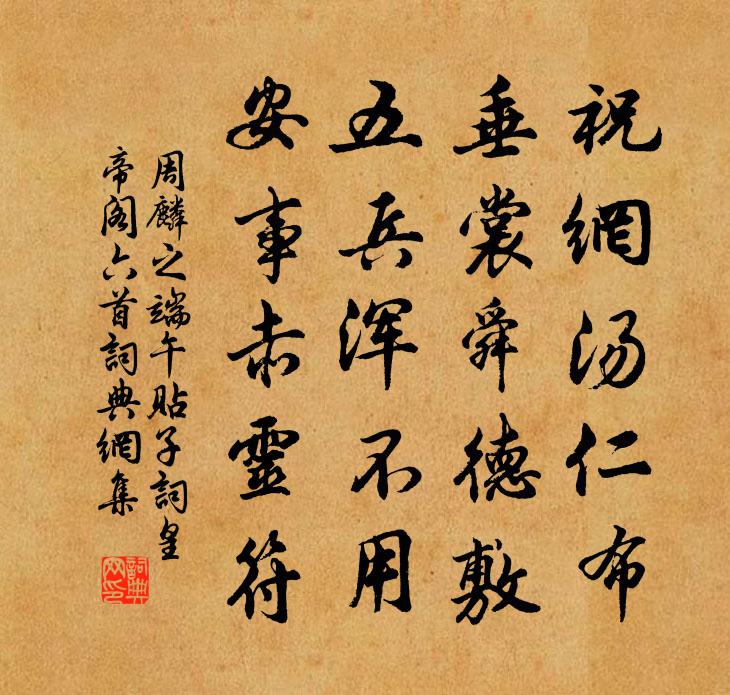 祝網湯仁布
垂裳舜德敷
五兵渾不用
安事赤靈符
周麟之端午貼子詞皇
帝閣六首詞典網集
詞典
网印